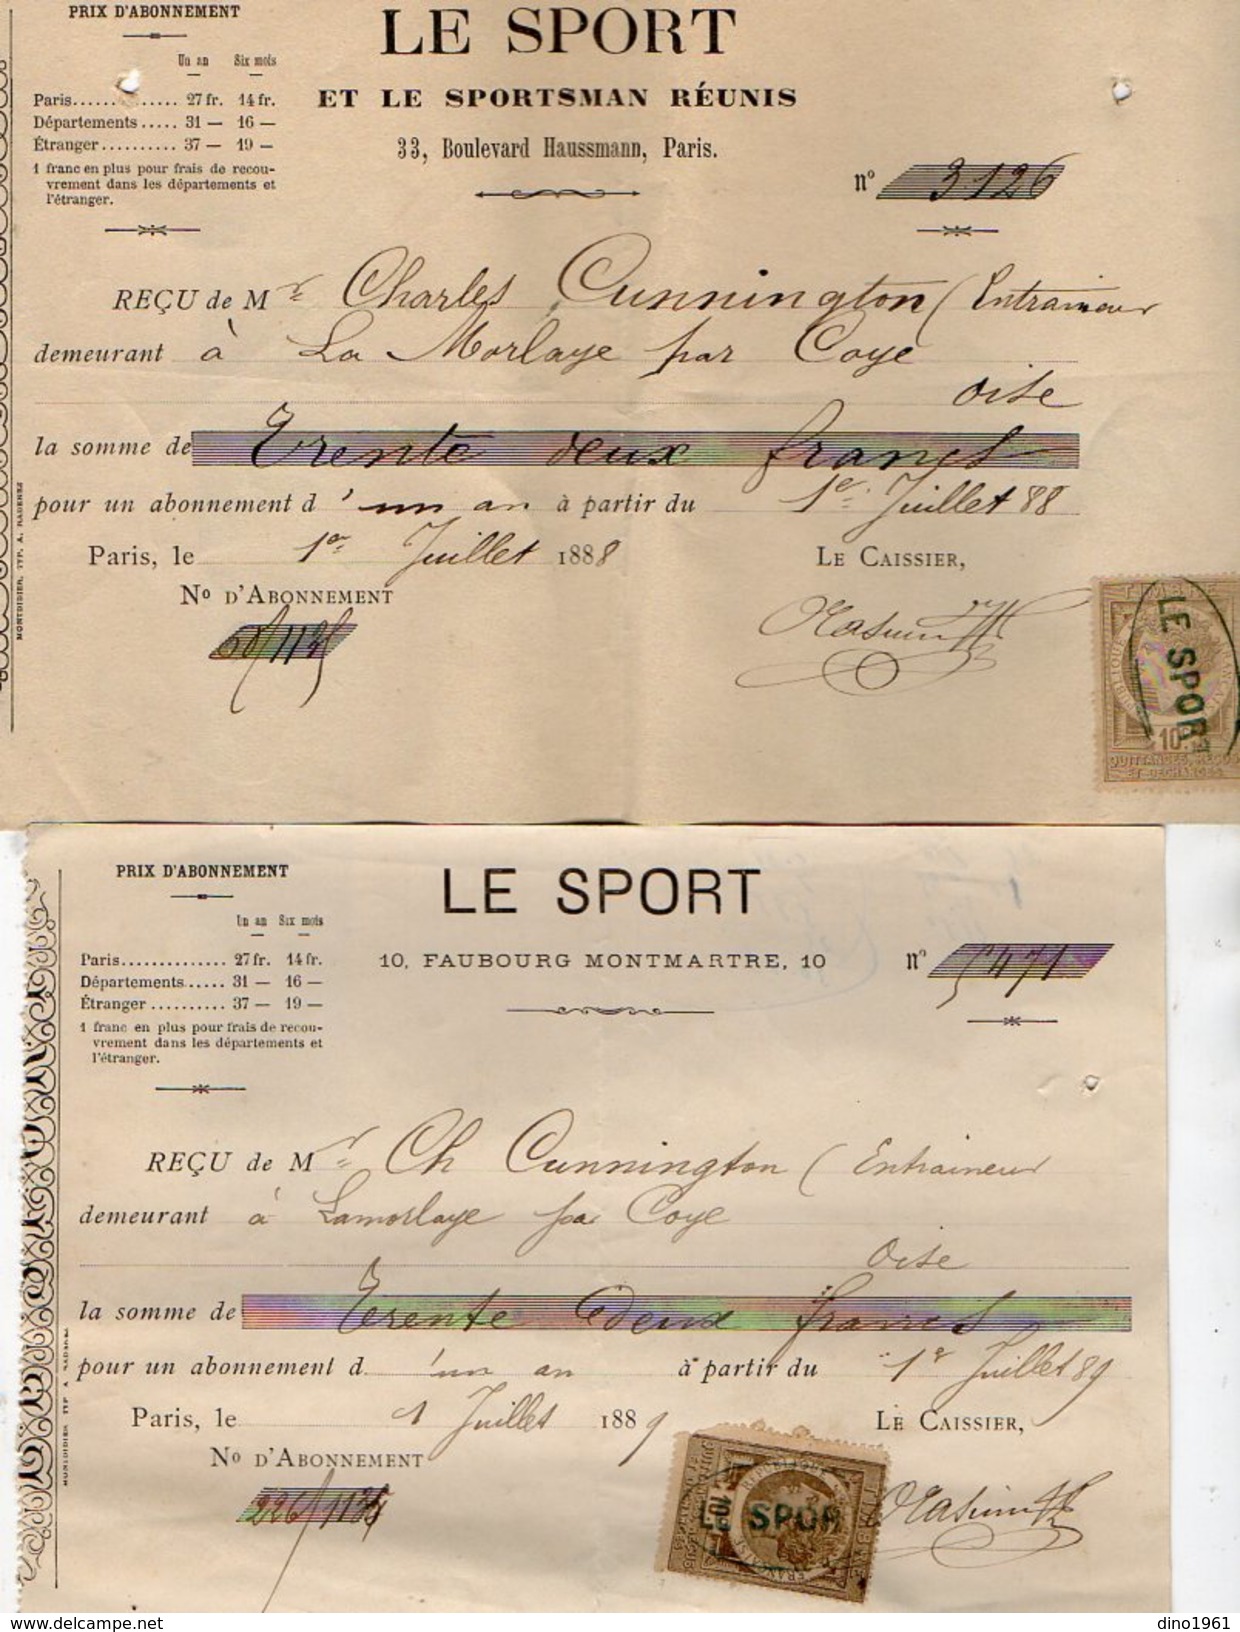 PRIX D'ABONNEMENT
Un an Six mois
Paris...... ...... 27 fr. 14 fr.
Départements ..... 31 — 16 —
Étranger.......... 37 — 19 —
1 franc en plus pour frais de recou-
vrement dans les départements et
l'étranger.
LE SPORT
ET LE SPORTSMAN RÉUNIS
33, Boulevard Haussmann, Paris.
n° 3126
REÇU de Mr Charles Cunnington (Entraineur
demeurant à La Morlaye par Coye
Oise
la somme de Trente deux francs
pour un abonnement d'un an à partir du 1er Juillet 88
Paris, le 1er Juillet 1888
LE CAISSIER,
No D'ABONNEMENT
MONTDIDIER, TYP. A. RADENEZ
TIMBRE
LE SPORT
10c
QUITTANCES, REÇUS
ET DÉCHARGES
PRIX D'ABONNEMENT
Un an Six mois
Paris.............. 27 fr. 14 fr.
Départements...... 31 — 16 —
Étranger .......... 37 — 19 —
1 franc en plus pour frais de recou-
vrement dans les départements et
l'étranger.
LE SPORT
10, FAUBOURG MONTMARTRE, 10
n° 5471
REÇU de Mr Ch Cunnington (Entraineur
demeurant à Lamorlaye par Coye
Oise
la somme de Trente Deux francs
pour un abonnement d'un an à partir du 1er Juillet 89
Paris, le 1 Juillet 1889
LE CAISSIER,
No D'ABONNEMENT
MONTDIDIER TYP A RADENEZ
SPOR
delcampe.net
dino1961